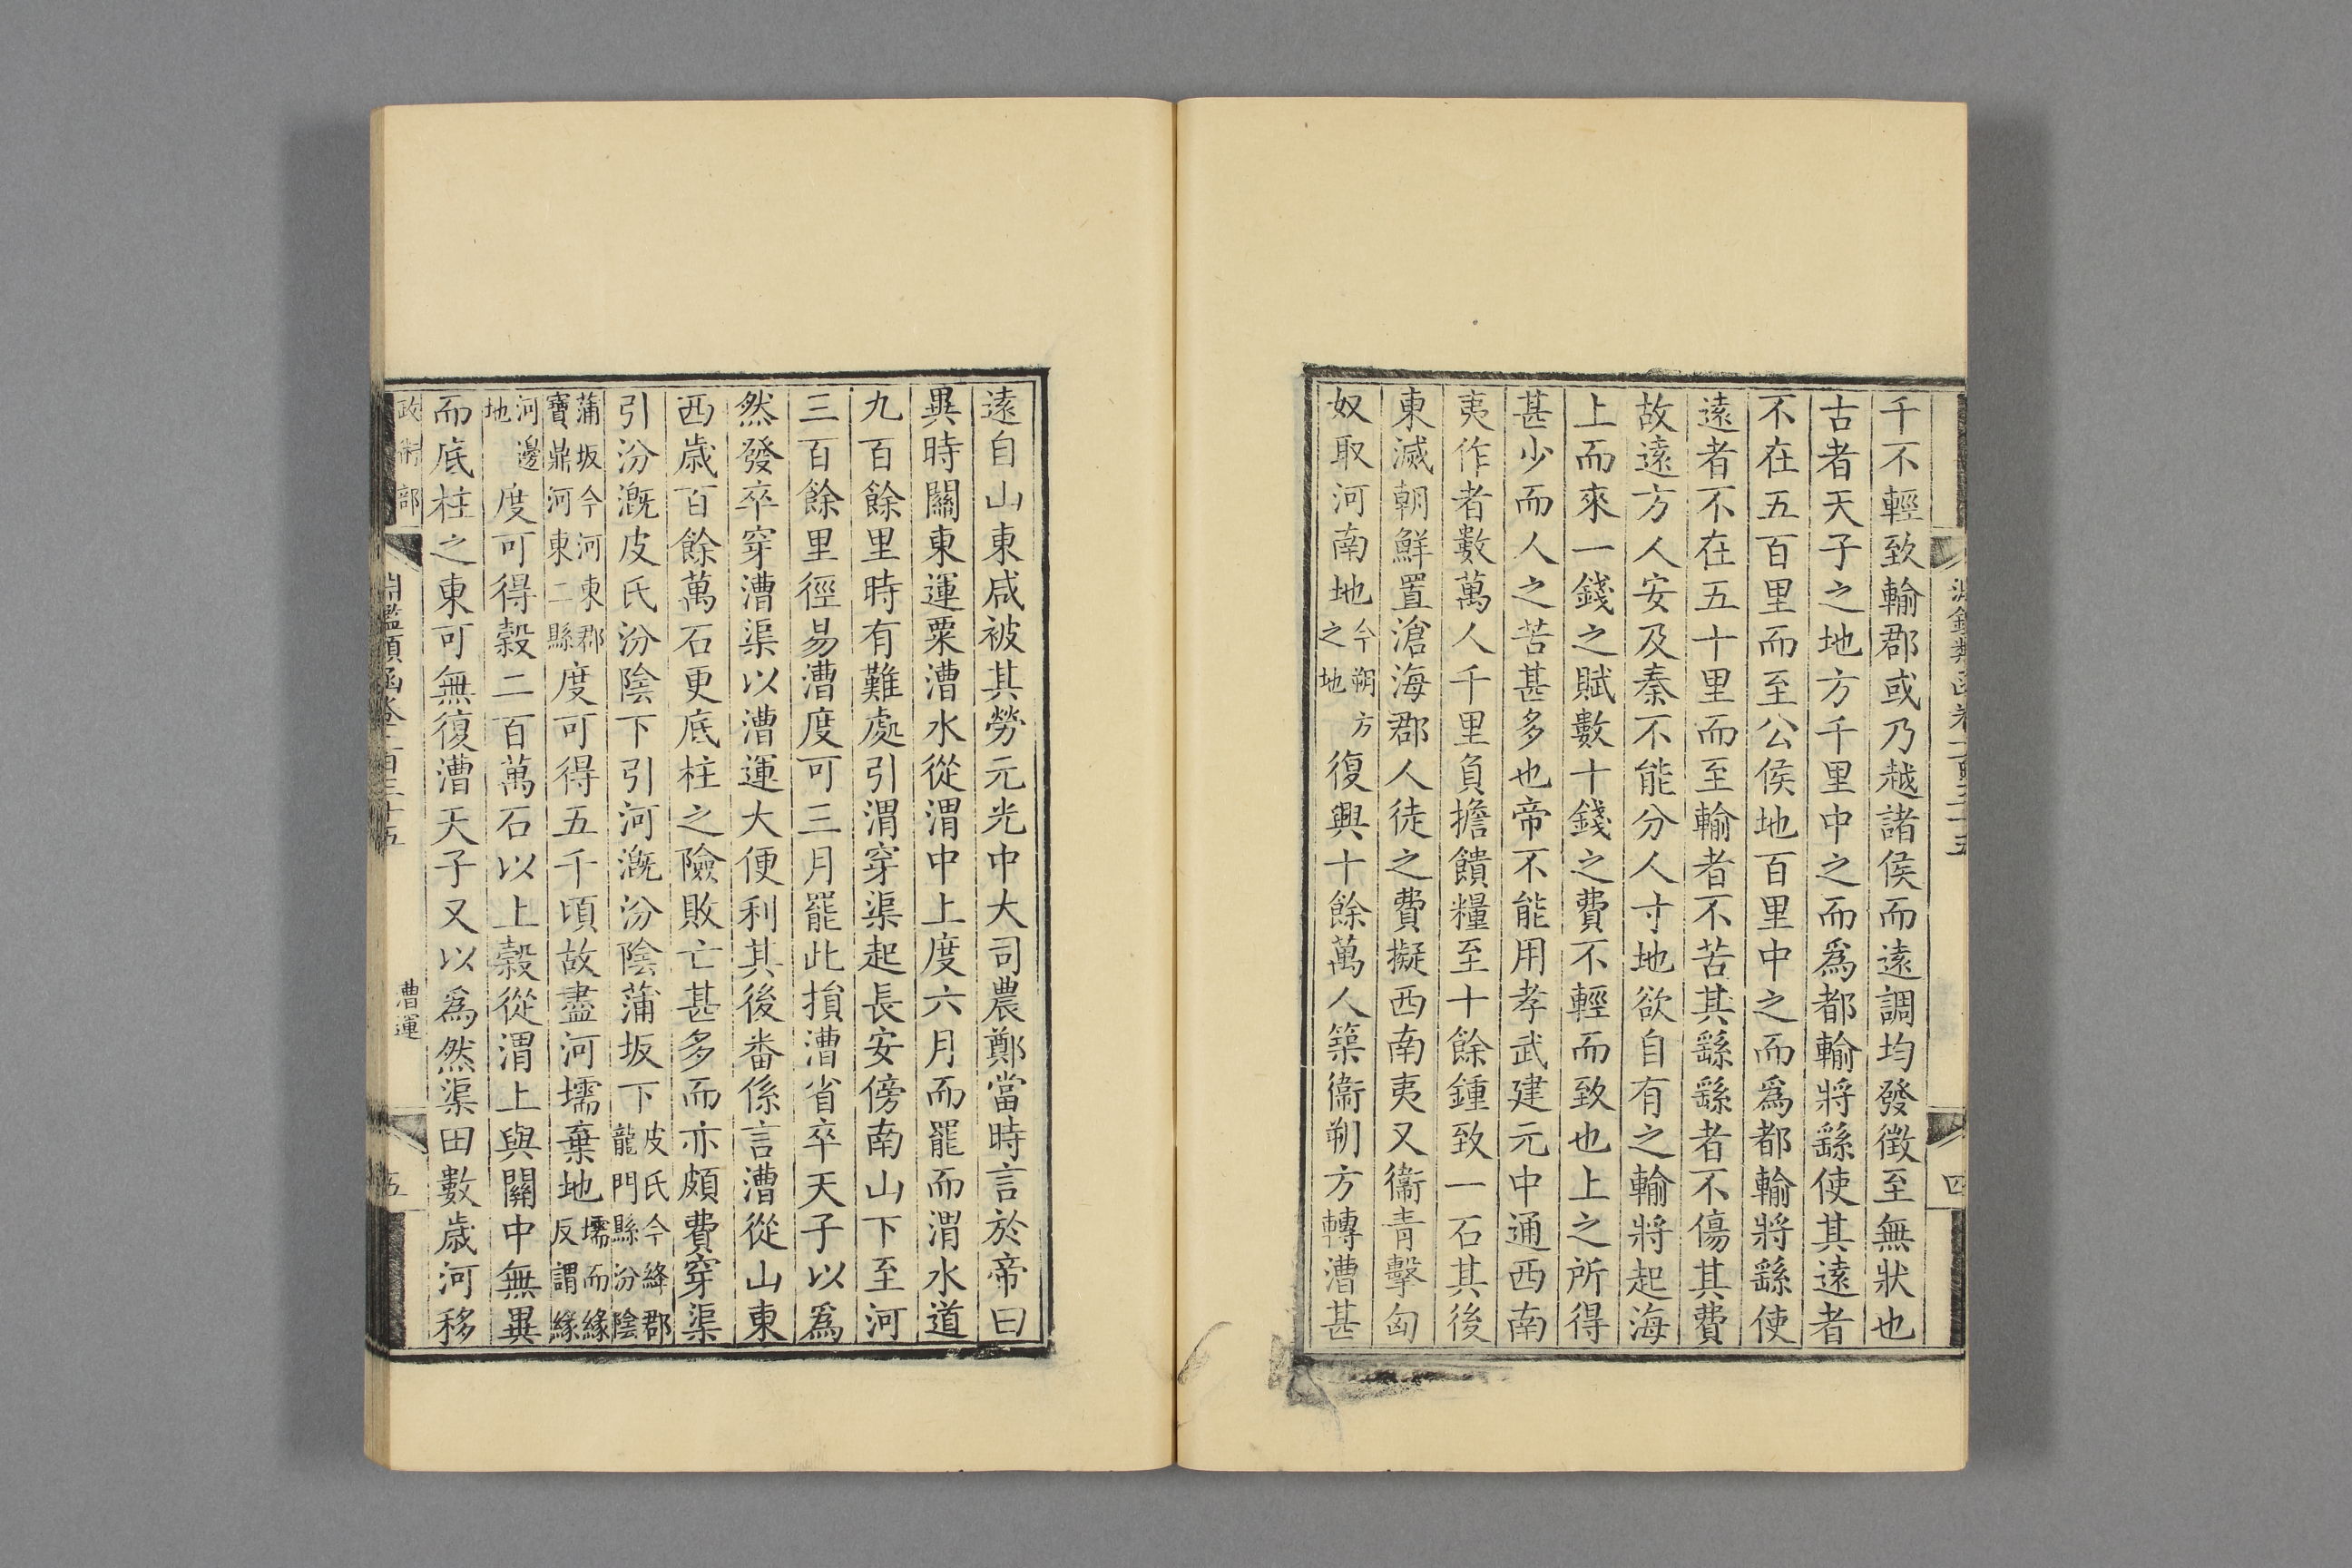 千不輕致輸郡或乃越諸侯而遠調均發徵至無狀也
古者天子之地方千里中之而爲都輸將繇使其遠者
不在五百里而至公侯地百里中之而爲都輸將繇使
遠者不在五十里而至輸者不苦其繇繇者不傷其費
故遠方人安及秦不能分人寸地欲自有之輸將起海
上而來一錢之賦數十錢之費不輕而致也上之所得
甚少而人之苦甚多也帝不能用孝武建元中通西南
夷作者數萬人千里負擔饋糧至十餘鍾致一石其後
東滅朝鮮置滄海郡人徒之費擬西南夷又衞青擊匈
奴取河南地今朔方之地復興十餘萬人築衞朔方轉漕甚
遠自山東咸被其勞元光中大司農鄭當時言於帝曰
異時關東運粟漕水從渭中上度六月而罷而渭水道
九百餘里時有難處引渭穿渠起長安傍南山下至河
三百餘里徑易漕度可三月罷此損漕省卒天子以爲
然發卒穿漕渠以漕運大便利其後番係言漕從山東
西歲百餘萬石更底柱之險敗亡甚多而亦頗費穿渠
引汾漑皮氏汾陰下引河漑汾陰蒲坂下皮氏今絳郡龍門縣汾陰
蒲坂今河東郡寶鼎河東二縣度可得五千頃故盡河壖棄地壖而緣反謂緣
河邊地度可得穀二百萬石以上穀從渭上與關中無異
而底柱之東可無復漕天子又以爲然渠田數歲河移
政術部
淵鑑類函卷一百三十五
漕運
五